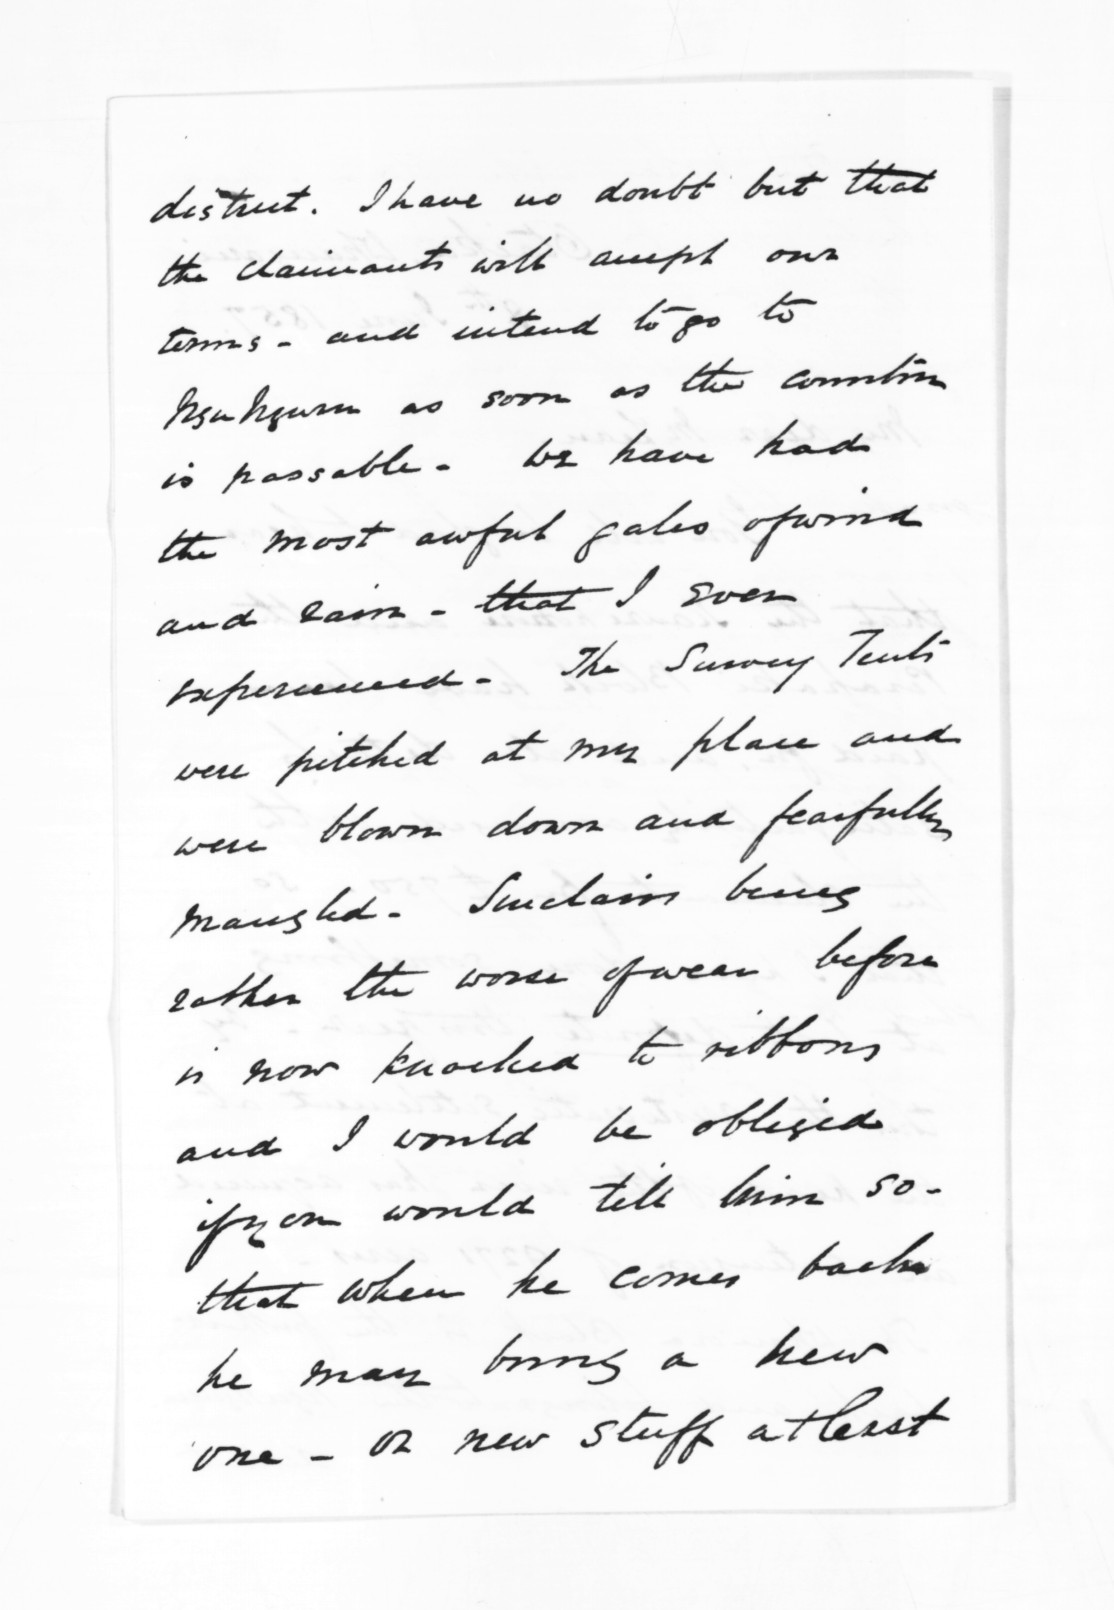 district. I have no doubt but that
the claimants will accept our
terms - and intend to go to
NguNguru as soon as the country
is passable - We have had
the most awful gales of wind
and rain - that I ever
experienced - The Survey Tents
were pitched at my place and
were blown down and fearfully
mangled - Sinclairs being
rather the worse of wear before
is now knocked to ribbons
and I would be obliged
if you would tell him so -
that when he comes back
he may bring a new
one - or new stuff at least